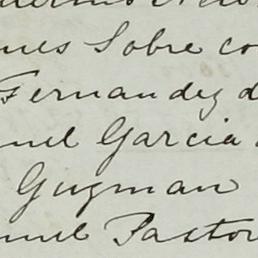 nes Sobre co
Fernandez d
nuel Garcia
Guzman
nuel Pastor